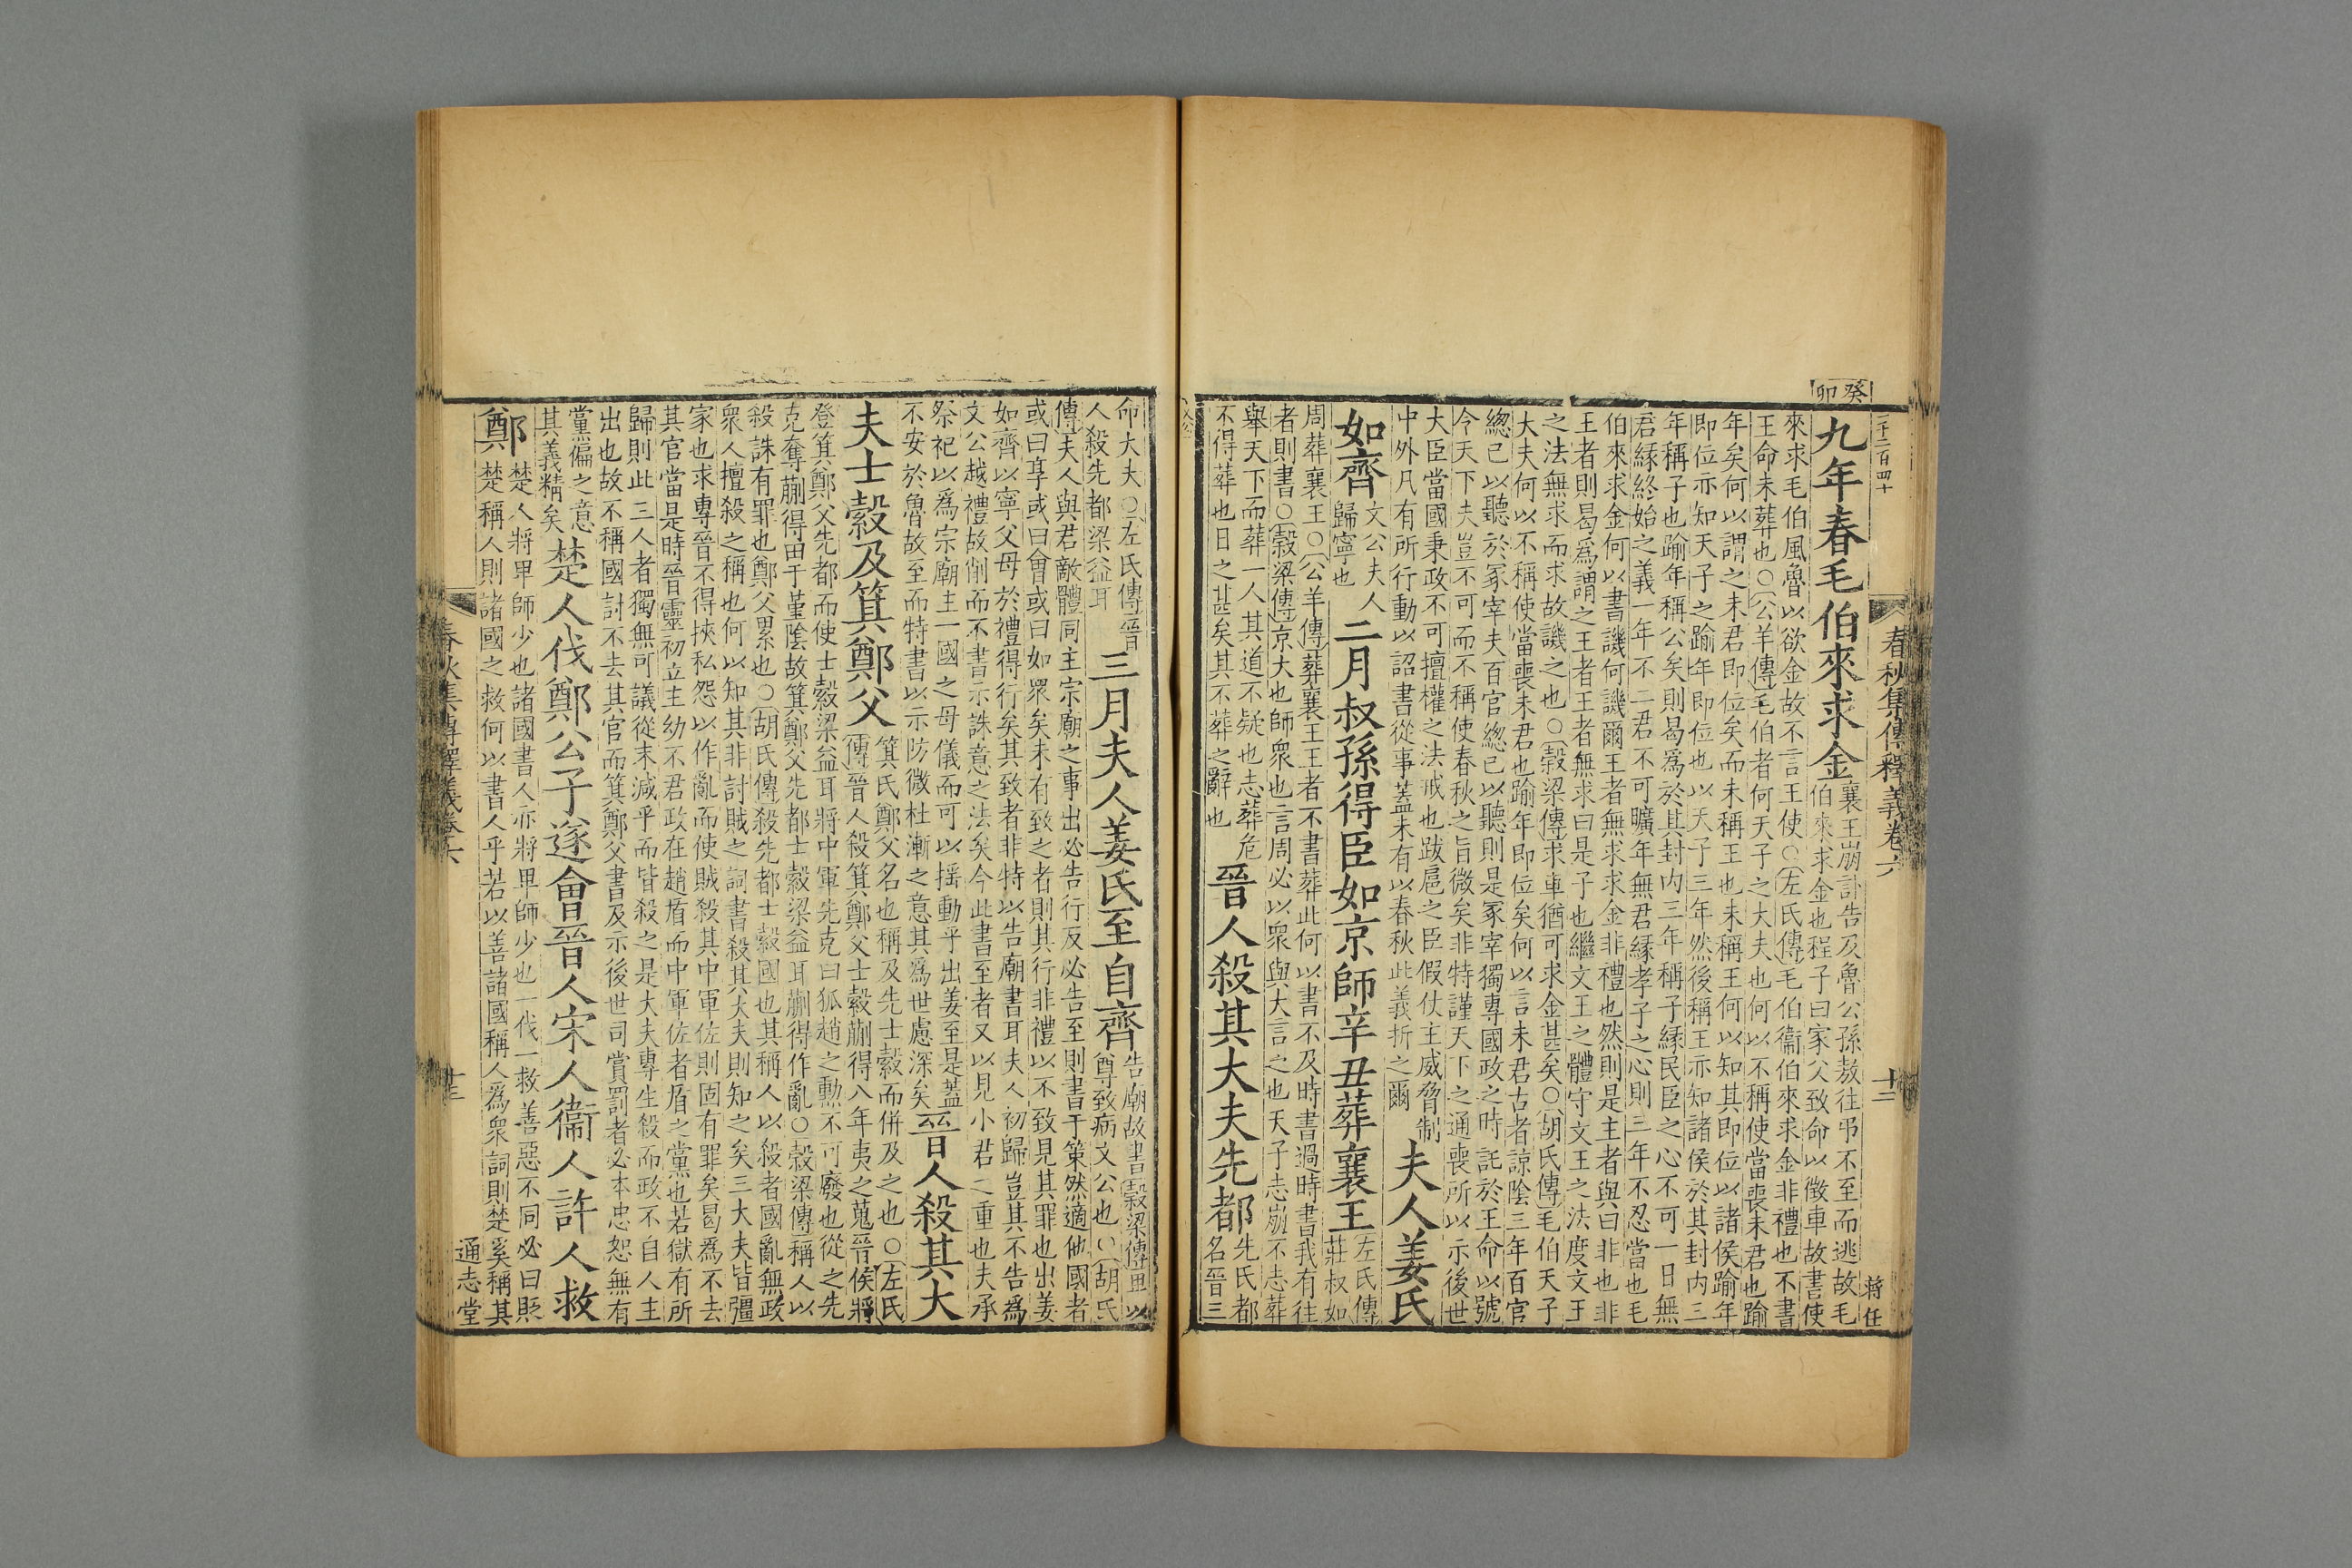 癸卯
二千二百四十
春秋集傳釋義卷六
十三
蔣任
九年春毛伯來求金
襄王崩訃告及魯公孫敖往弔不至而逃故毛
伯來求金也程子曰家父致命以徵車故書使
來求毛伯風魯以欲金故不言王使○左氏傳毛伯衞伯來求金非禮也不書
王命未葬也○公羊傳毛伯者何天子之大夫也何以不稱使當喪未君也踰
年矣何以謂之未君即位矣而未稱王也未稱王何以知其即位以諸侯踰年
即位亦知天子之踰年即位也以天子三年然後稱王亦知諸侯於其封内三
年稱子也踰年稱公矣則曷爲於其封内三年稱子縁民臣之心不可一日無
君縁終始之義一年不二君不可曠年無君縁孝子之心則三年不忍當也毛
伯來求金何以書譏何譏爾王者無求求金非禮也然則是主者與曰非也非
王者則曷爲謂之王者王者無求曰是子也繼文王之體守文王之法度文王
之法無求而求故譏之也○穀梁傳求車猶可求金甚矣○胡氏傳毛伯天子
大夫何以不稱使當喪未君也踰年即位矣何以言未君古者諒陰三年百官
總己以聽於冢宰夫百官總己以聽則是冢宰獨專國政之時託於王命以號
今天下夫豈不可而不稱使春秋之旨微矣非特謹天下之通喪所以示後世
大臣當國秉政不可擅權之法戒也跋扈之臣假仗主威脅制
中外凡有所行動以詔書從事蓋未有以春秋此義折之爾
夫人姜氏
如齊
文公夫人
歸寧也
二月叔孫得臣如京師辛丑葬襄王
左氏傳
莊叔如
周葬襄王○公羊傳葬襄王王者不書葬此何以書不及時書過時書我有往
者則書○穀梁傳京大也師衆也言周必以衆與大言之也天子志崩不志葬
舉天下而葬一人其道不疑也志葬危
不得葬也日之甚矣其不葬之辭也
晉人殺其大夫先都
先氏都
名晉三
命大夫○左氏傳晉
人殺先都梁益耳
三月夫人姜氏至自齊
告廟故書穀梁傳卑以
尊致病文公也○胡氏
傳夫人與君敵體同主宗廟之事出必告行反必告至則書于策然適他國者
或曰享或曰會或曰如衆矣未有致之者則其行非禮以不致見其罪也出姜
如齊以寧父母於禮得行矣其致者非特以告廟書耳夫人初歸豈其不告爲
文公越禮故削而不書示誅意之法矣今此書至者又以見小君之重也夫承
祭祀以爲宗廟主一國之母儀而可以揺動乎出姜至是蓋
不安於魯故至而特書以示防微杜漸之意其爲世慮深矣
晉人殺其大
夫士縠及箕鄭父
箕氏鄭父名也稱及先士縠而併及之也○左氏
傳晉人殺箕鄭父士縠蒯得八年夷之蒐晉侯將
登箕鄭父先都而使士縠梁益耳將中軍先克曰狐趙之勲不可廢也從之先
克奪蒯得田于堇陰故箕鄭父先都士縠梁益耳蒯得作亂○穀梁傳稱人以
殺誅有罪也鄭父累也○胡氏傳殺先都士縠國也其稱人以殺者國亂無政
衆人擅殺之稱也何以知其非討賊之詞書殺其大夫則知之矣三大夫皆彊
家也求專晉不得挾私怨以作亂而使賊殺其中軍佐則固有罪矣曷爲不去
其官當是時晉靈初立主幼不君政在趙盾而中軍佐者盾之黨也若獄有所
歸則此三人者獨無可議從末減乎而皆殺之是大夫專生殺而政不自人主
出也故不稱國討不去其官而箕鄭父書及示後世司賞罰者必本忠恕無有
黨偏之意
其義精矣
楚人伐鄭公子遂會晉人宋人衞人許人救
鄭
楚人將卑師少也諸國書人亦將卑師少也一伐一救善惡不同必曰貶
楚稱人則諸國之救何以書人乎若以善諸國稱人爲衆詞則楚奚稱其
春秋集傳釋義卷六
十三
通志堂